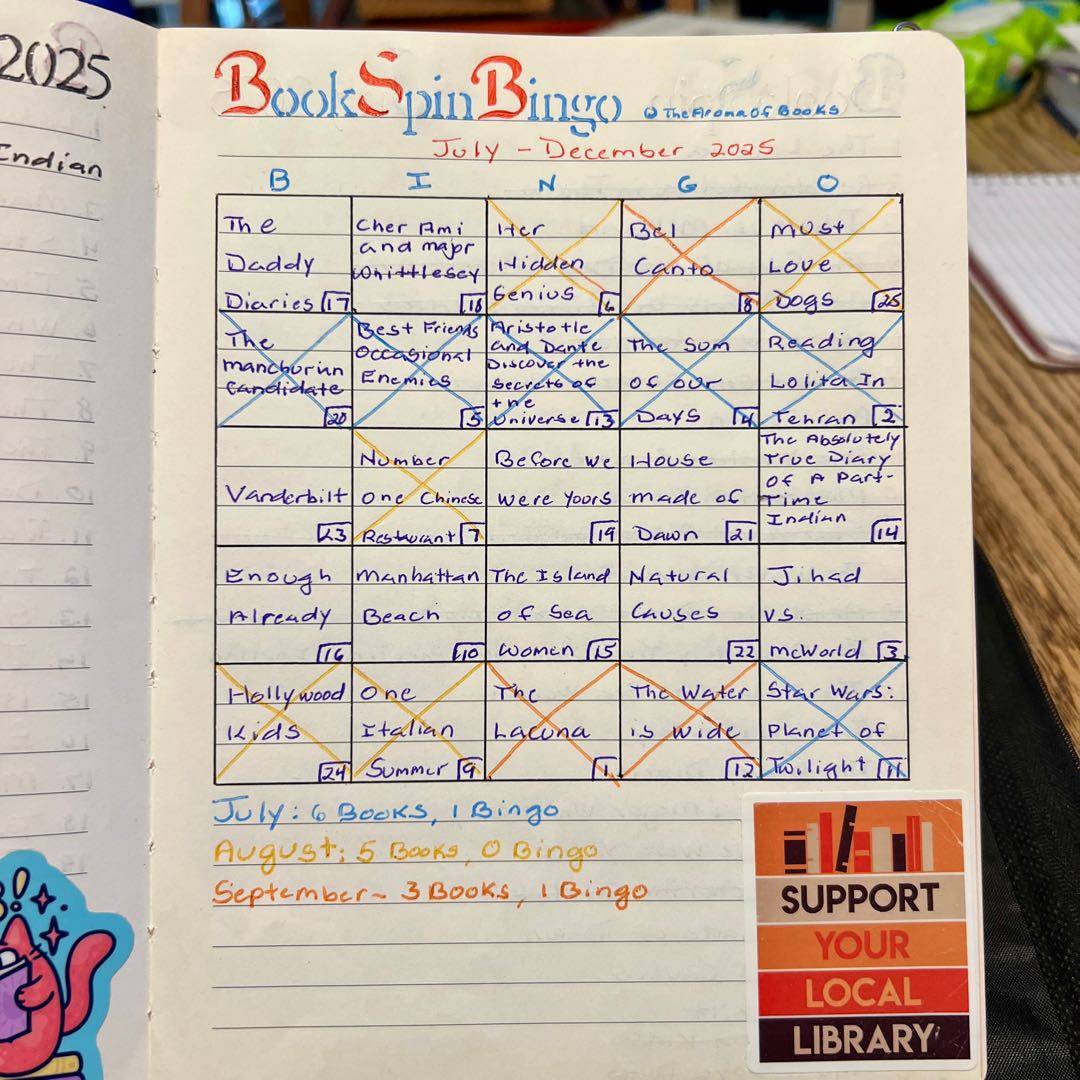 2025
Indian
BookSpinBingo @TheAromaOfBooks
July - December 2025
B I N G O
The
Daddy
Diaries 17
Cher Ami
and major
Whittlesey
18
Her
Hidden
Genius 6
Bel
Canto
8
Must
Love
Dogs 25
The
manchurian
Candidate
20
Best Friends
Occasional
Enemies
5
Aristotle
and Dante
Discover the
Secrets of
the
Universe 13
The Sum
of our
Days 4
Reading
Lolita In
Tehran 2
Vanderbilt
23
Number
one Chinese
Restaurant 7
Before we
were yours
19
House
made of
Dawn 21
The Absolutely
True Diary
Of A Part-
Time
Indian
14
Enough
Already
16
manhattan
Beach
10
The Island
of Sea
Women 15
Natural
Causes
22
Jihad
vs.
mcWorld 3
Hollywood
Kids
24
One
Italian
Summer 9
The
Lacuna
1
The Water
is wide
12
Star Wars:
Planet of
Twilight 11
July: 6 Books, 1 Bingo
August: 5 Books, 0 Bingo
September- 3 Books, 1 Bingo
SUPPORT
YOUR
LOCAL
LIBRARY